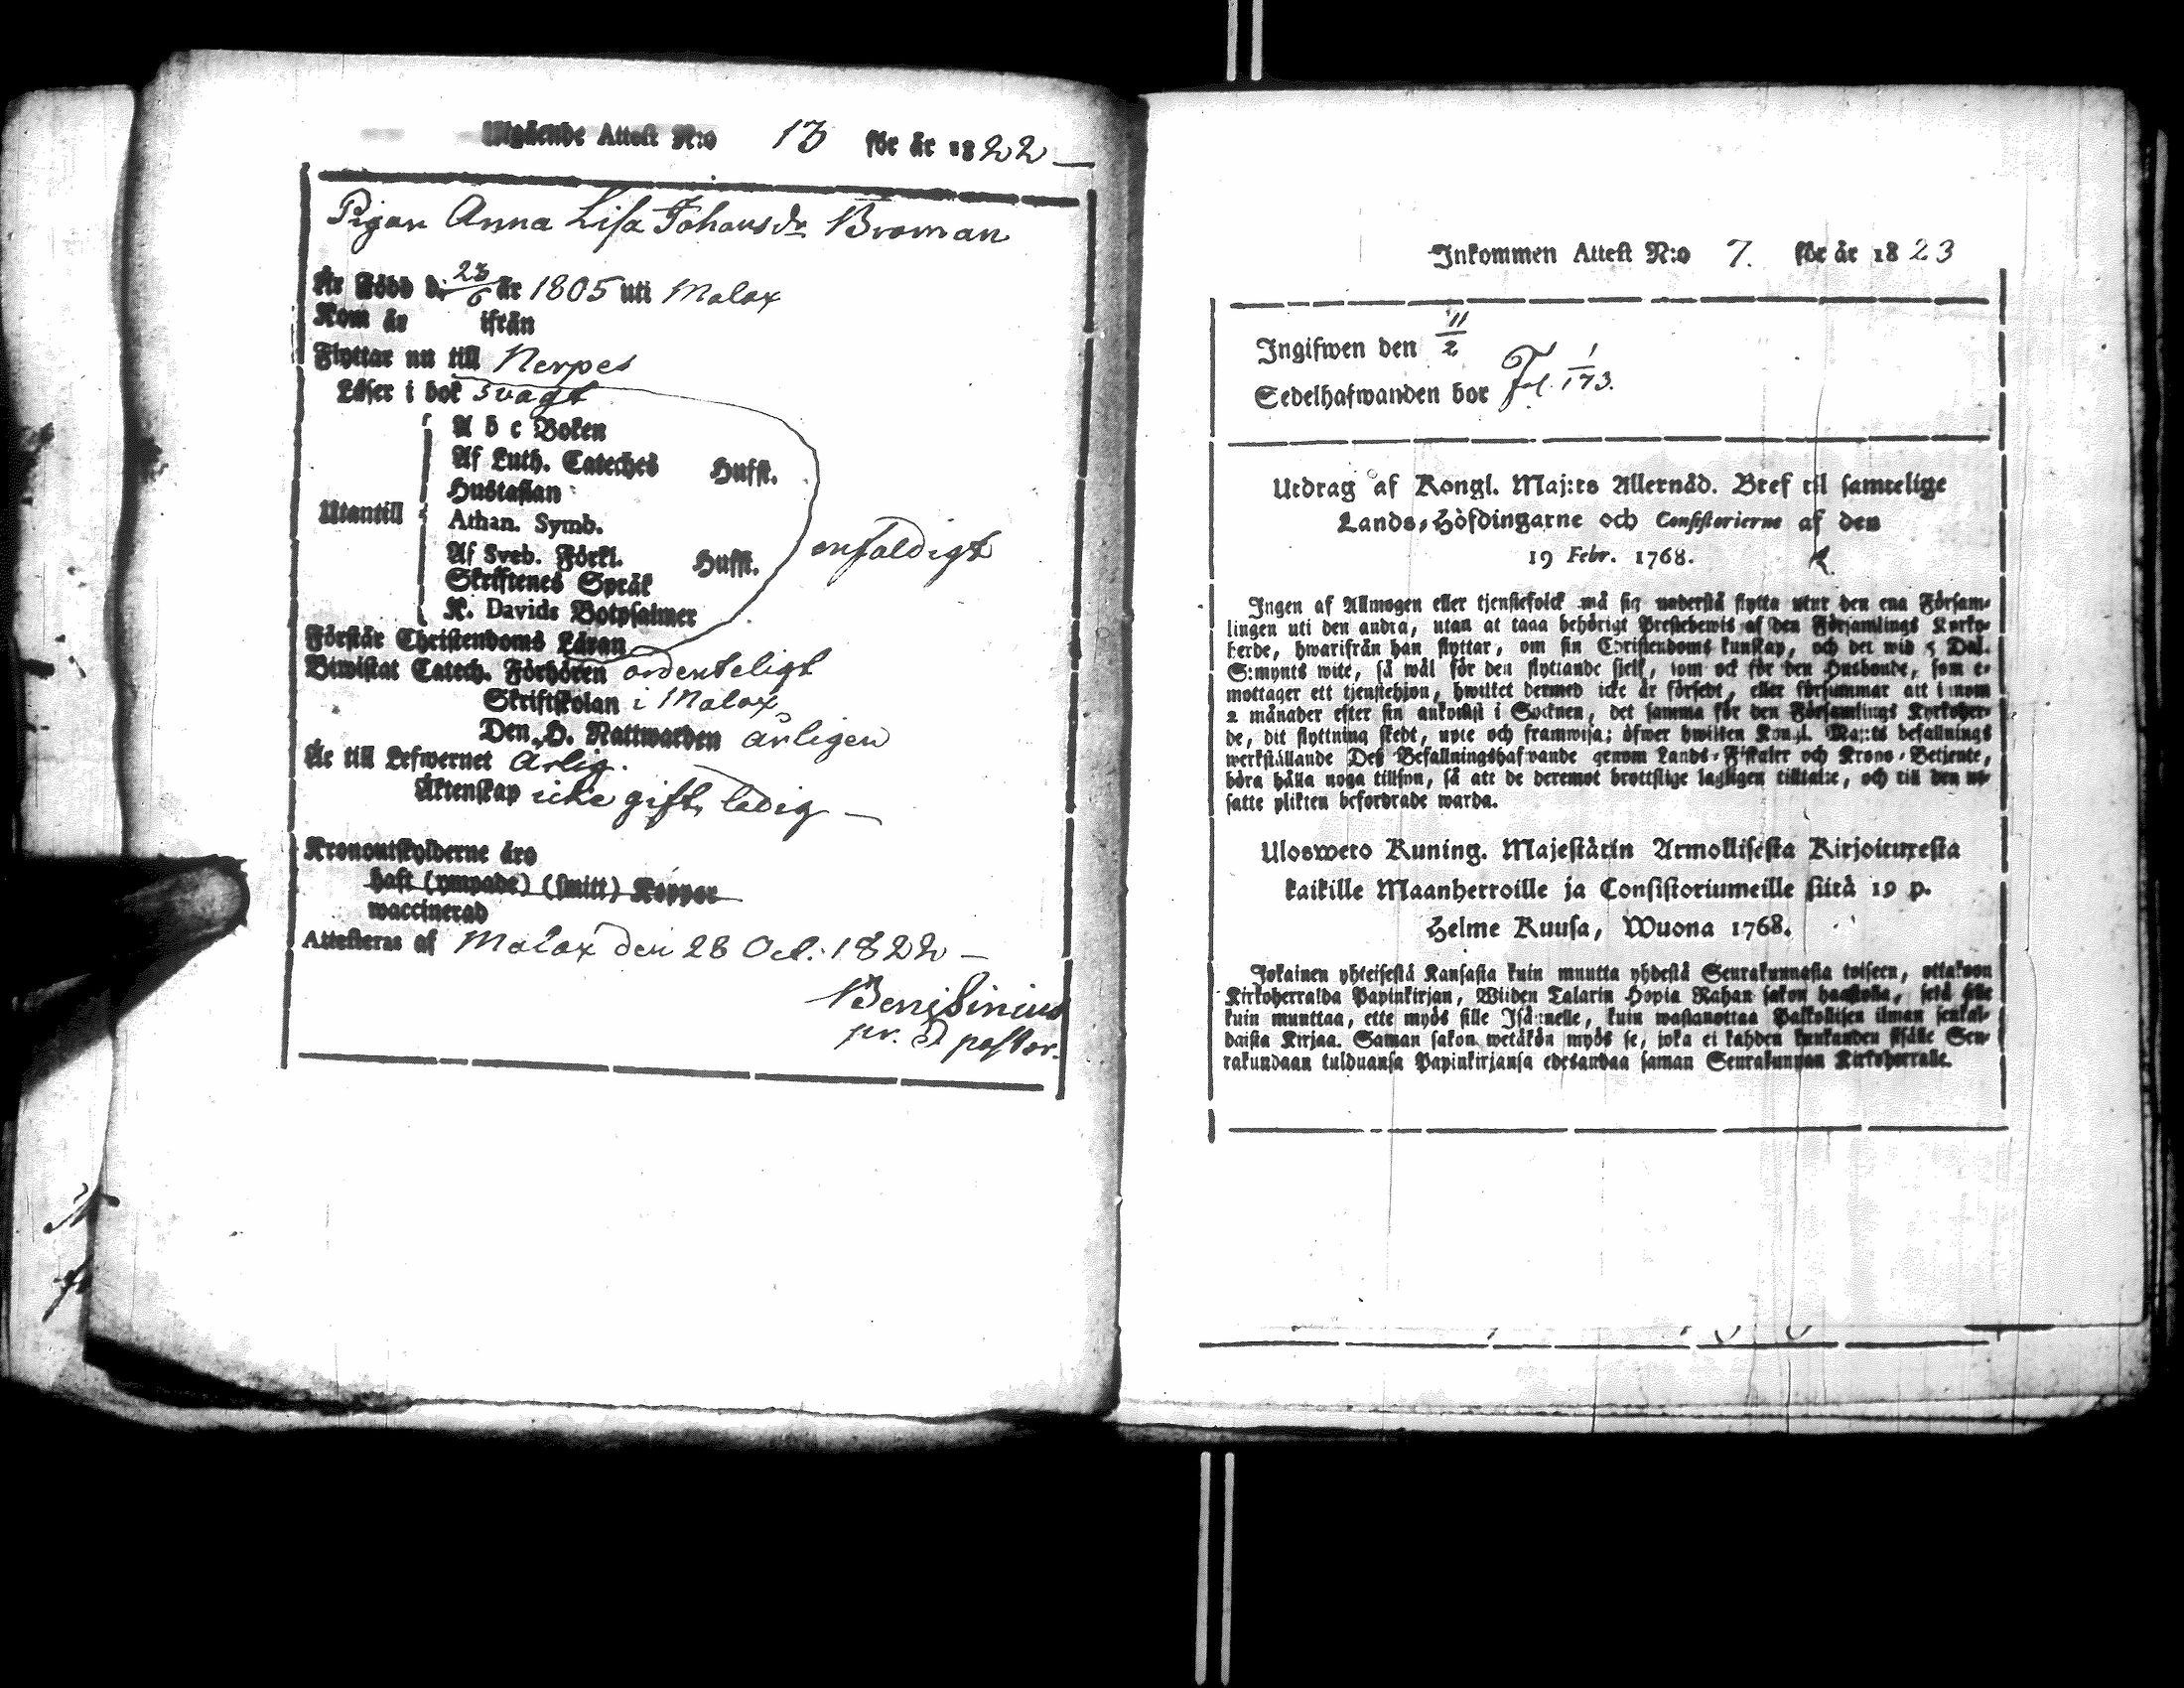 Utgående Attest N:o 13 för år 1822
Pigan Anna Lisa Johansdr Broman
Är Född d. 23/6 år 1805 uti Malax
Kom år ifrån
Flyttar nu till Nerpes
Läser i bok svagt
A b c Boken
Af Luth. Cateches Hufst.
Hustaflan
Utantill Athan. Symb. enfaldigt
Af Sveb. Förkl. Hufst.
Skriftenes Språk
K. Davids Botpsalmer
Förstår Christendoms Läran
Biwistat Catech. Förhören ordenteligt
Skriftskolan i Malax
Den H. Nattwarden årligen
Är till Lefwernet Ärlig.
Äktenskap icke gift, ledig —
Kronoutskylderne äro
haft (ympade) (smitt) Koppor
waccinerad
Attesteras af Malax den 28 Oct. 1822 —
pr. pastor.
Inkommen Attest N:o 7. för år 1823
Ingifwen den 11/2
Sedelhafwanden bor Fol. 1/173.
Utdrag af Kongl. Maj:ts Allernåd. Bref til samtelige
Lands-Höfdingarne och Consistorierne af den
19 Febr. 1768.
Ingen af Allmogen eller tjenstefolck må sig understå flytta utur den ena Försam-
lingen uti den andra, utan at taga behörigt Prestebewis af den Församlings Kyrko-
herde, hwarifrån han flyttar, om sin Christendoms kunskap, och det wid 5 Dal.
S:mynts wite, så wäl för den flyttande sielf, som ock för den Husbonde, som e-
mottager ett tjenstehjon, hwilket dermed icke är försedt, eller försummar att inom
2 månader efter sin ankomst i Socknen, det samma för den Församlings Kyrkoher-
de, dit flyttning skedt, upte och framwisa; öfwer hwilken Kongl. Maj:ts befallnings
werkställande Deß Befallningshafwande genom Lands-Fiskaler och Krono-Betjente,
böra hålla noga tillsyn, så att de deremot brottslige lagligen tilltalte, och till den ut-
satte plikten befordrade warda.
Uloswето Kuning. Majestätin Armollisesta Kirjoituxesta
kaikille Maanherroille ja Consistoriumeille siitä 19 p.
Helme Kuusa, Wuona 1768.
Jokainen yhteisestä Kansasta kuin muutta yhdestä Seurakunnasta toiseen, ottakoon
Kirkoherralda Papinkirjan, Wiiden Talarin Hopia Rahan sakon haastolla, sekä sille
kuin muuttaa, ette myös sille Isännelle, kuin wastanottaa Palkollisen ilman senkal-
daista Kirjaa. Saman sakon wetäkön myös se, joka ei kahden kuukauden sisälle Seu-
rakundaan tulduansa Papinkirjansa edesandaa saman Seurakunnan Kirkoherralle.